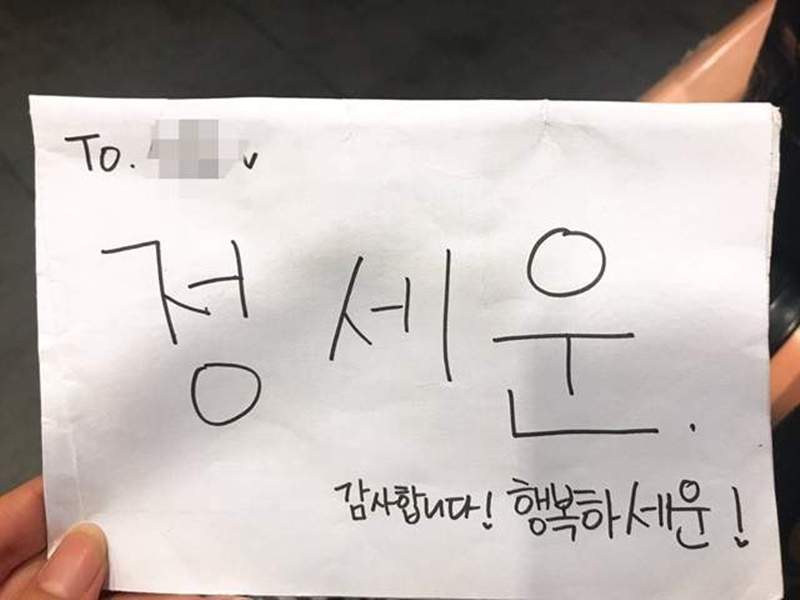 To.
정세운.
감사합니다! 행복하세운!